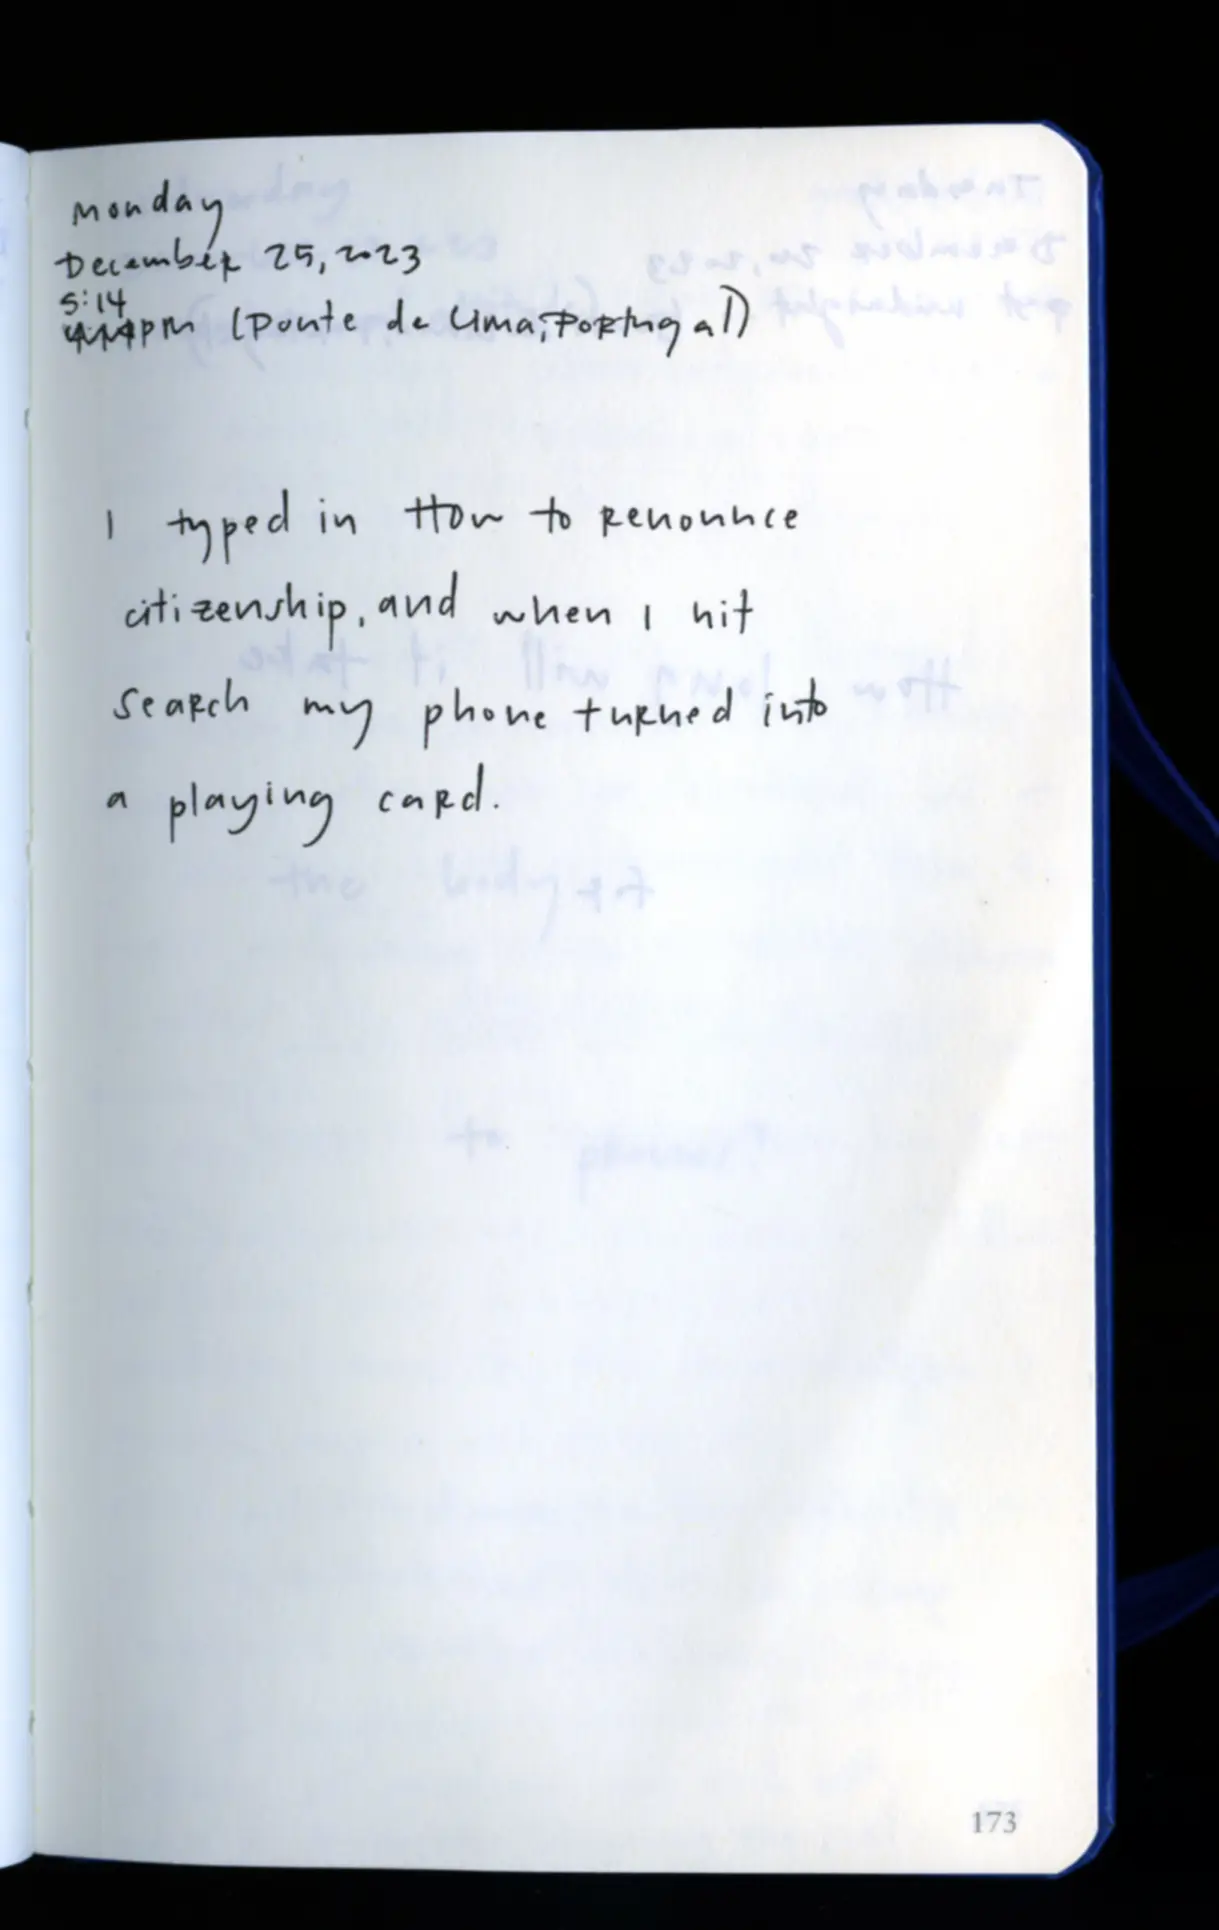 Monday
December 25, 2023
5:14
pm (Ponte de Lima, Portugal)
I typed in How to renounce
citizenship, and when I hit
search my phone turned into
a playing card.
173